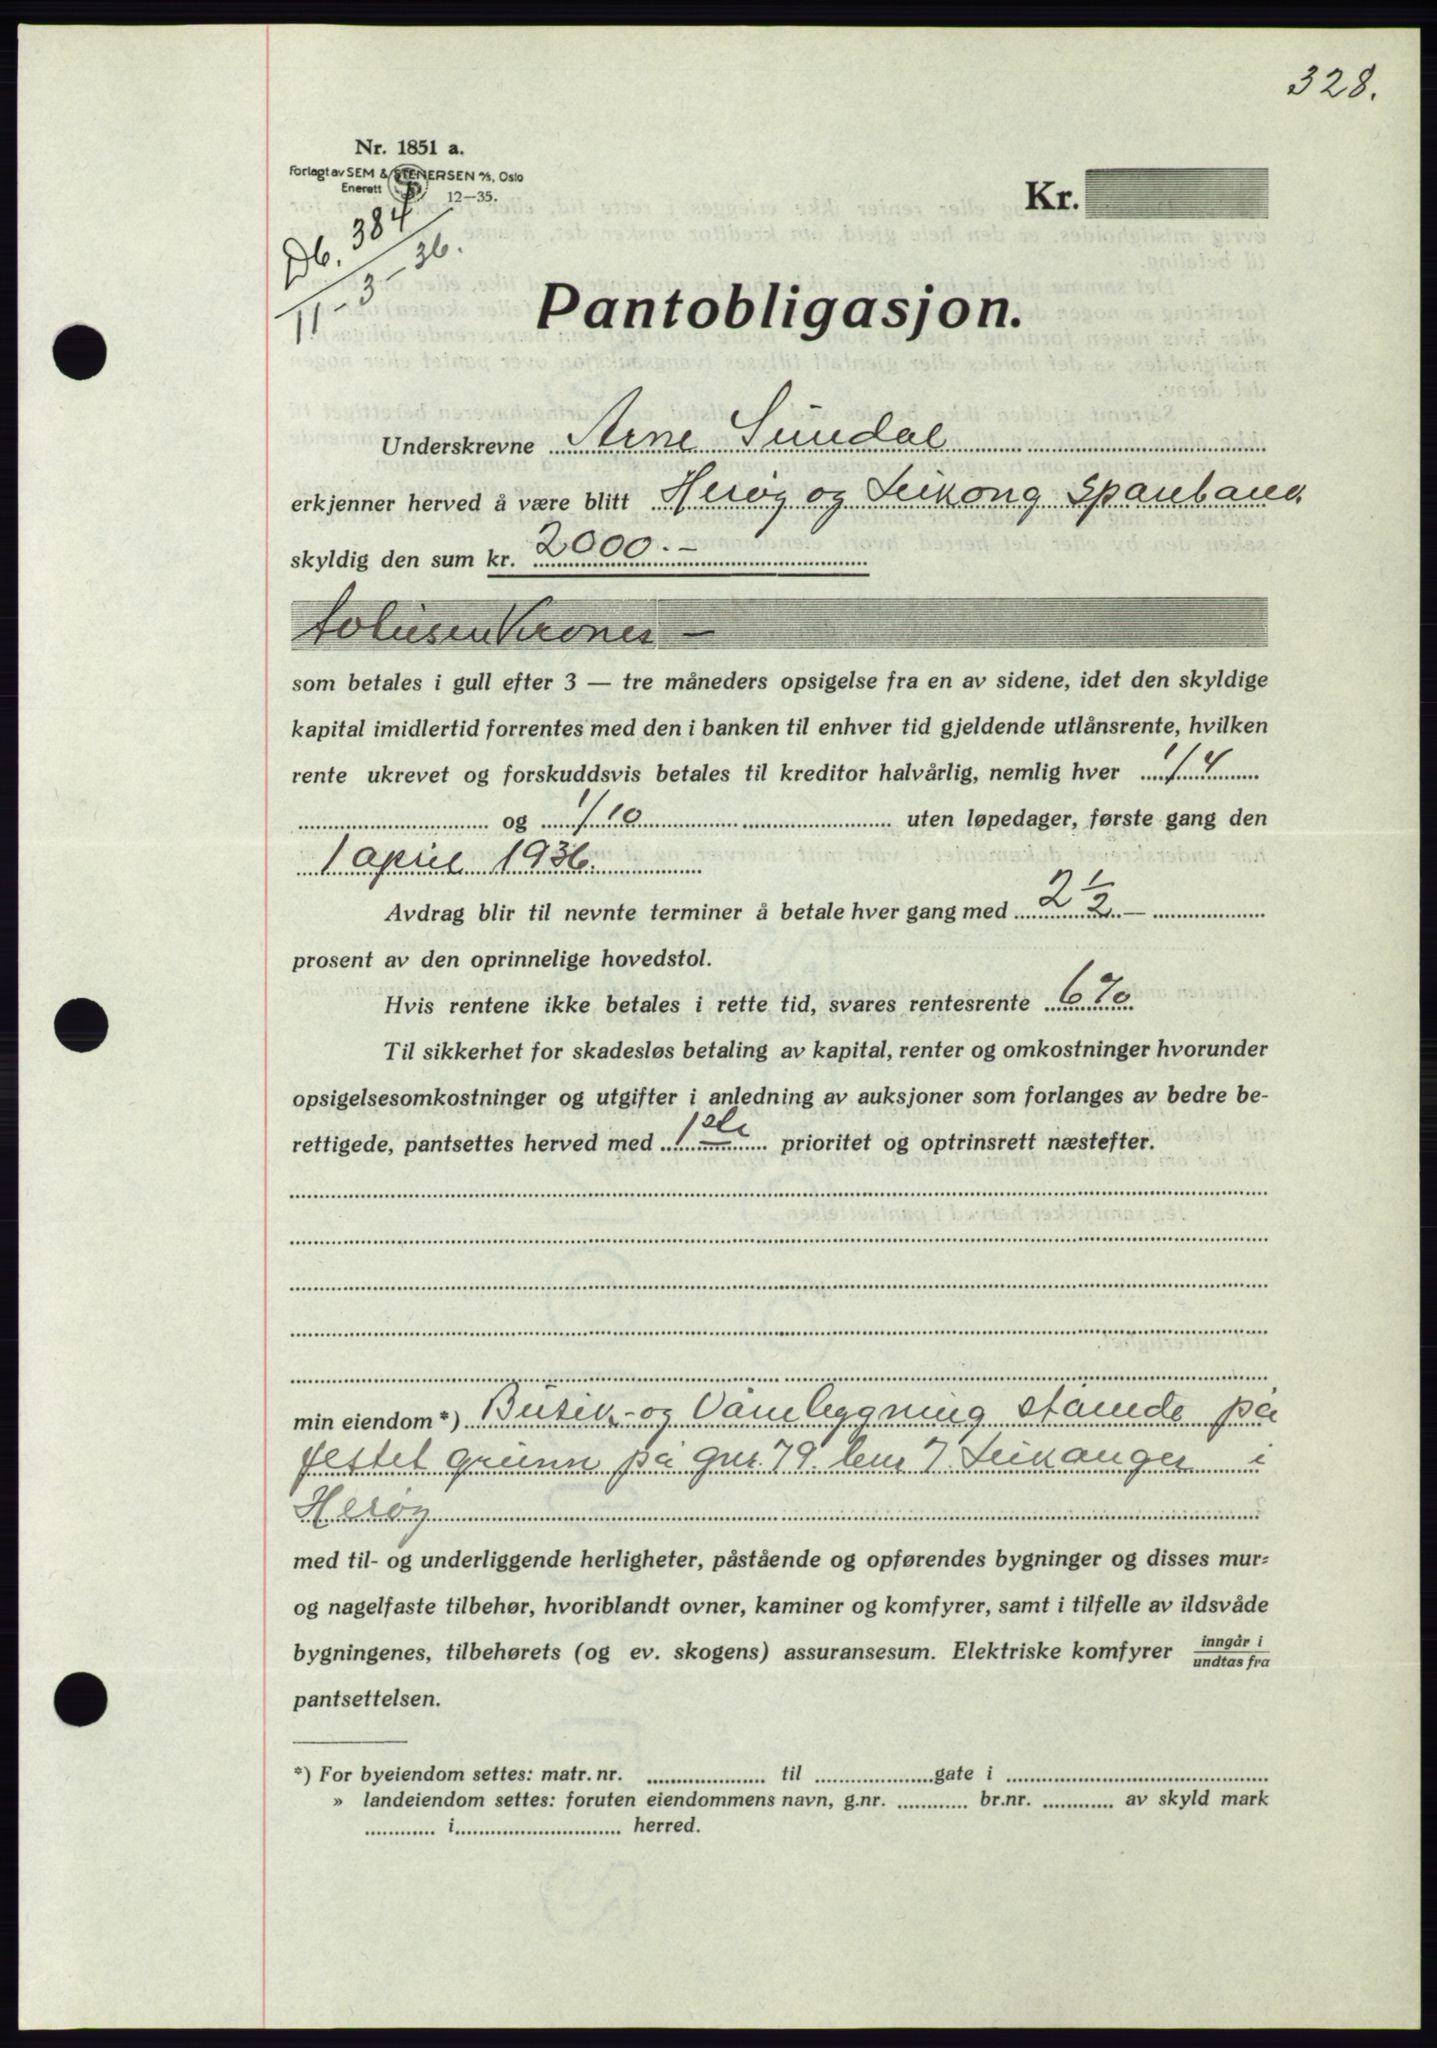 328.
Nr. 1851 a.
Forlagt av SEM & STENERSEN A/S, Oslo
Enerett
12—35.
Kr.
Db. 384
11-3-36.
Pantobligasjon.
Underskrevne Arne Sundal
erkjenner herved å være blitt Herøy og Leikong Sparebank
skyldig den sum kr. 2000.-
totusen Kroner —
som betales i gull efter 3 — tre måneders opsigelse fra en av sidene, idet den skyldige
kapital imidlertid forrentes med den i banken til enhver tid gjeldende utlånsrente, hvilken
rente ukrevet og forskuddsvis betales til kreditor halvårlig, nemlig hver 1/4
og 1/10 uten løpedager, første gang den
1 april 1936.
Avdrag blir til nevnte terminer å betale hver gang med 2 1/2 —
prosent av den oprinnelige hovedstol.
Hvis rentene ikke betales i rette tid, svares rentesrente 6%
Til sikkerhet for skadesløs betaling av kapital, renter og omkostninger hvorunder
opsigelsesomkostninger og utgifter i anledning av auksjoner som forlanges av bedre be-
rettigede, pantsettes herved med 1ste prioritet og optrinsrett næstefter.
min eiendom*) Butik- og Våningbygning stående på
festet grunn på gnr. 79. bnr 7 Leikanger i
Herøy
med til- og underliggende herligheter, påstående og opførendes bygninger og disses mur-
og nagelfaste tilbehør, hvoriblandt ovner, kaminer og komfyrer, samt i tilfelle av ildsvåde
bygningenes, tilbehørets (og ev. skogens) assuransesum. Elektriske komfyrer inngår i / undtas fra
pantsettelsen.
*) For byeiendom settes: matr. nr. til gate i
» landeiendom settes: foruten eiendommens navn, g.nr. br.nr. av skyld mark
i herred.